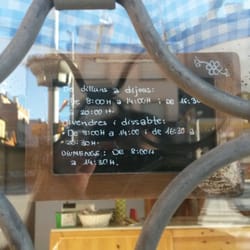 De dilluns a dijous:
· De 8:00H a 14:00H i De 16:30
a 20:00H.
Divendres i dissabte:
· De 8:00H a 14:00 i de 16:30 a
20:30H.
DIUMENGE: DE 8:00H
a 14:30H.